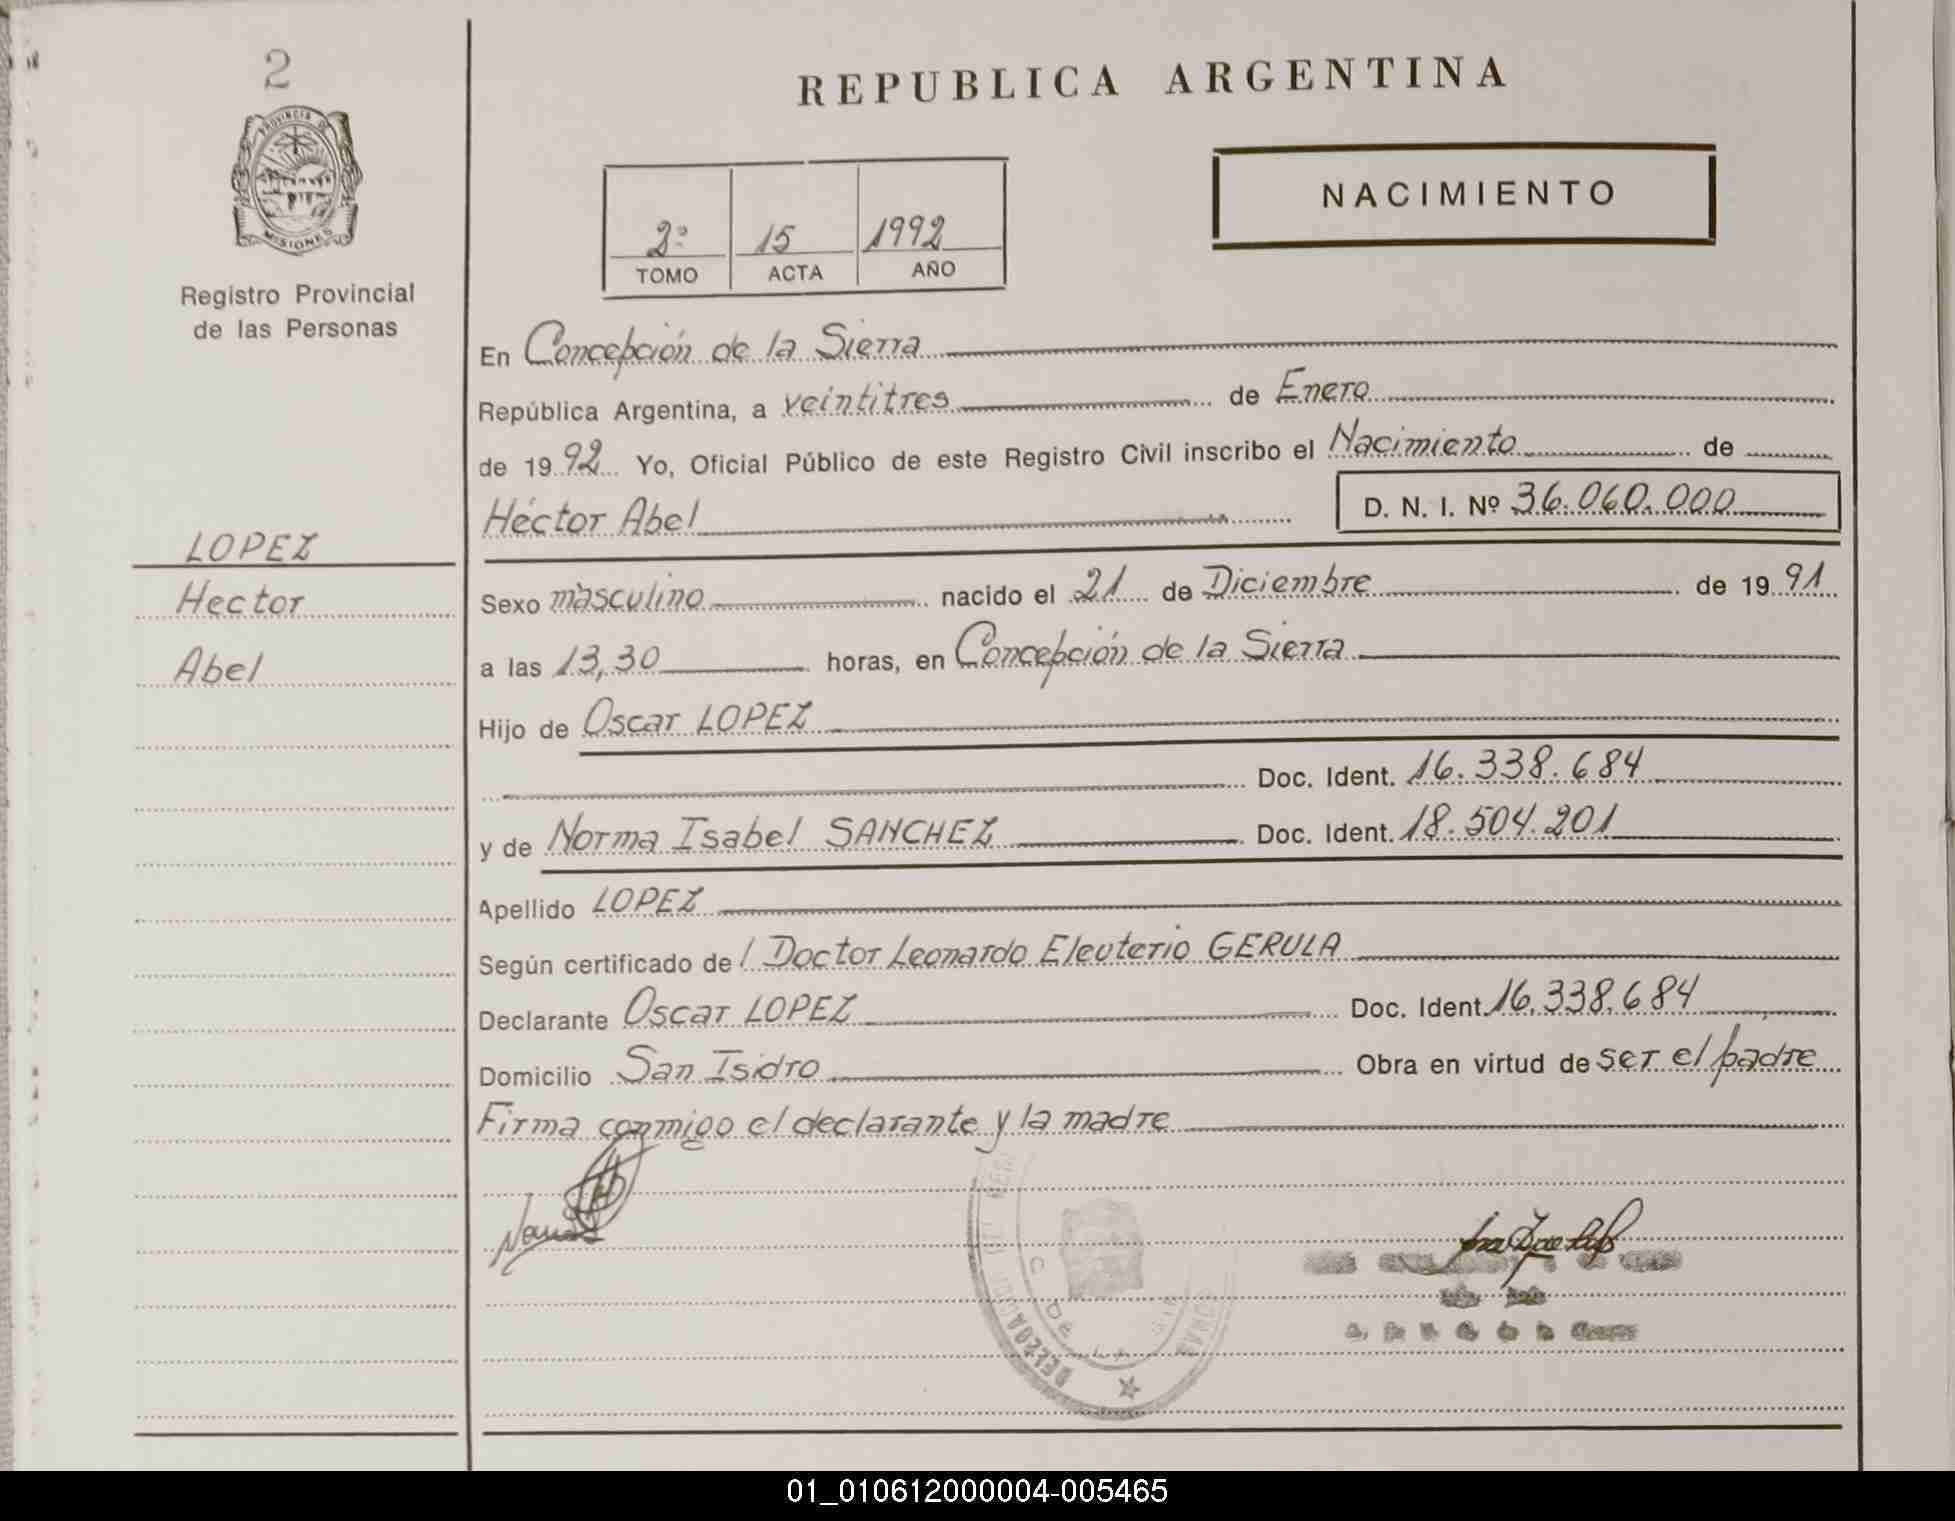 2
PROVINCIA DE
MISIONES
Registro Provincial
de las Personas
LOPEZ
Hector
Abel
REPUBLICA ARGENTINA
NACIMIENTO
2º 15 1992
TOMO ACTA AÑO
En Concepción de la Sierra
República Argentina, a veintitres de Enero
de 1992 Yo, Oficial Público de este Registro Civil inscribo el Nacimiento de
Héctor Abel D. N. I. Nº 36.060.000
Sexo masculino nacido el 21 de Diciembre de 1991
a las 13,30 horas, en Concepción de la Sierra
Hijo de Oscar LOPEZ
Doc. Ident. 16.338.684
y de Norma Isabel SANCHEZ Doc. Ident. 18.504.201
Apellido LOPEZ
Según certificado del Doctor Leonardo Eleuterio GERULA
Declarante Oscar LOPEZ Doc. Ident. 16.338.684
Domicilio San Isidro Obra en virtud de ser el padre
Firma conmigo el declarante y la madre
DELEGACION DEL
C DE LA
01_010612000004-005465